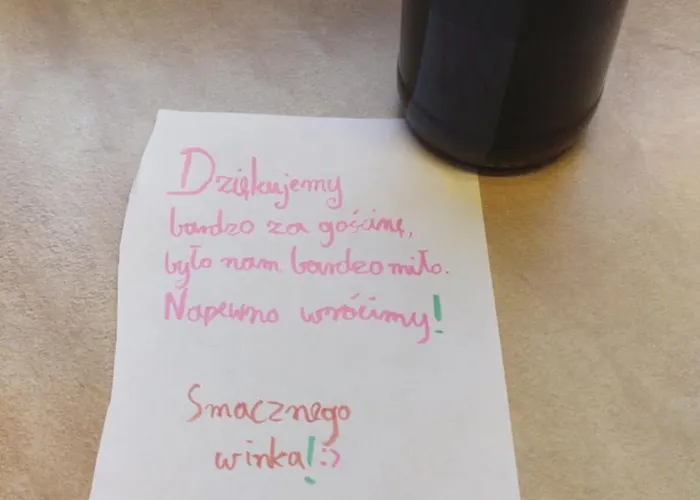 Dziękujemy
bardzo za gościnę,
było nam bardzo miło.
Napewno wrócimy!
Smacznego
winka! :)